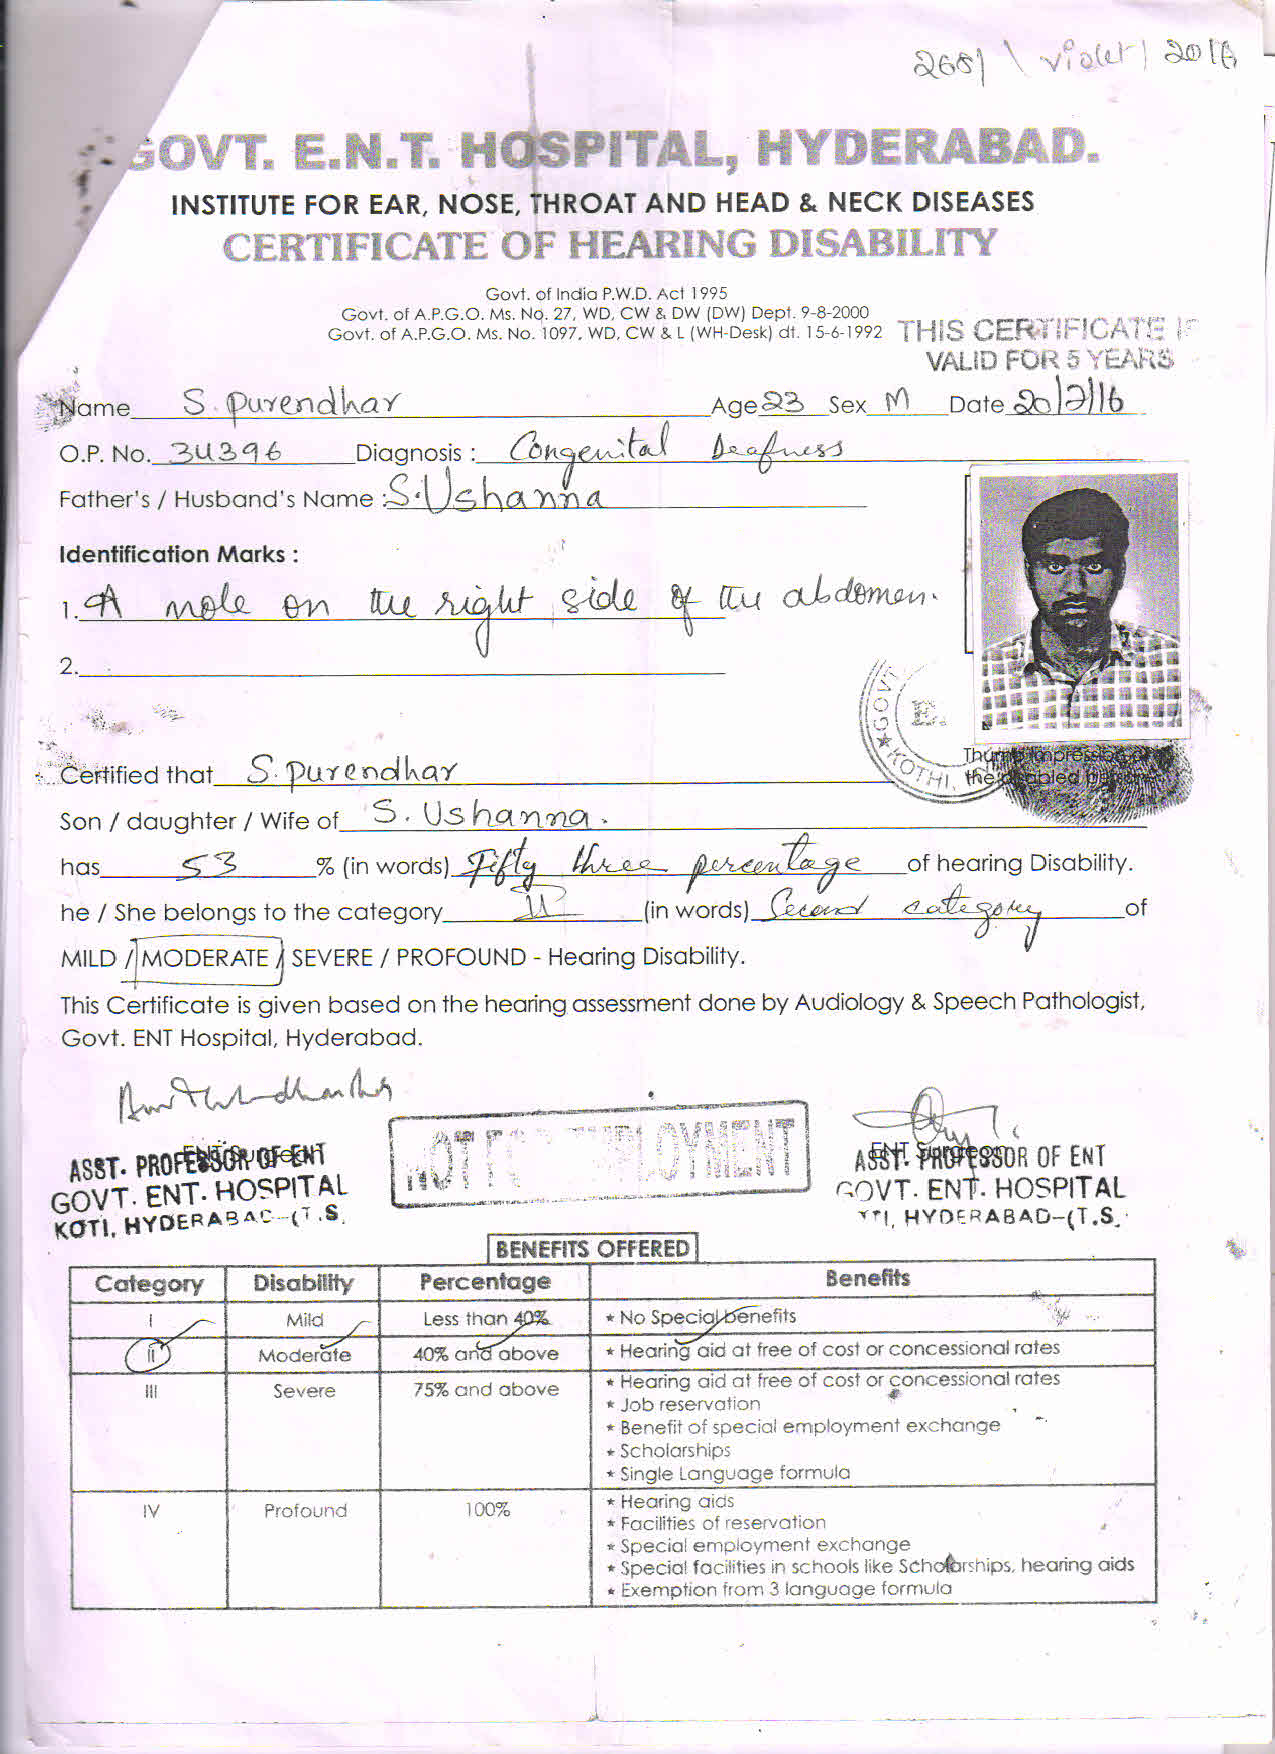 2681 \ violet / 2016
GOVT. E.N.T. HOSPITAL, HYDERABAD.
INSTITUTE FOR EAR, NOSE, THROAT AND HEAD & NECK DISEASES
CERTIFICATE OF HEARING DISABILITY
Govt. of India P.W.D. Act 1995
Govt. of A.P.G.O. Ms. No. 27, WD, CW & DW (DW) Dept. 9-8-2000
Govt. of A.P.G.O. Ms. No. 1097, WD, CW & L (WH-Desk) dt. 15-6-1992
THIS CERTIFICATE IS
VALID FOR 5 YEARS
Name S. Purendhar Age 23 Sex M Date 20/7/16
O.P. No. 34396 Diagnosis : Congenital Deafness
Father's / Husband's Name : S. Ushanna
Identification Marks :
1. A mole on the right side of the abdomen.
2.
GOVT E. KOTHI,
Thumb Impression of
the disabled person
Certified that S. Purendhar
Son / daughter / Wife of S. Ushanna.
has 53 % (in words) Fifty three percentage of hearing Disability.
he / She belongs to the category II (in words) Second category of
MILD / MODERATE / SEVERE / PROFOUND - Hearing Disability.
This Certificate is given based on the hearing assessment done by Audiology & Speech Pathologist,
Govt. ENT Hospital, Hyderabad.
NOT FOR EMPLOYMENT
ENT Surgeon
ASST. PROFESSOR OF ENT
GOVT. ENT. HOSPITAL
KOTI, HYDERABAD-(T.S.
ENT Surgeon
ASST. PROFESSOR OF ENT
GOVT. ENT. HOSPITAL
KOTI, HYDERABAD-(T.S.
BENEFITS OFFERED
Category Disability Percentage Benefits
I Mild Less than 40% * No Special benefits
II Moderate 40% and above * Hearing aid at free of cost or concessional rates
III Severe 75% and above * Hearing aid at free of cost or concessional rates
* Job reservation
* Benefit of special employment exchange
* Scholarships
* Single Language formula
IV Profound 100% * Hearing aids
* Facilities of reservation
* Special employment exchange
* Special facilities in schools like Scholarships, hearing aids
* Exemption from 3 language formula